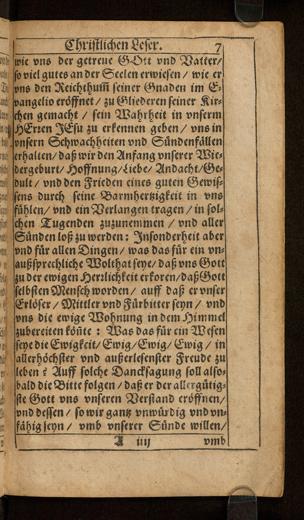 Christlichen Leser. 7
wie vns der getreue GOtt vnd Vatter/
so viel gutes an der Seelen erwiesen / wie er
vns den Reichthum̃ seiner Gnaden im E-
vangelio eröffnet / zu Gliederen seiner Kir-
chen gemacht / sein Wahrheit in vnserm
HErren JEsu zu erkennen geben / vns in
vnsern Schwachheiten vnd Sündenfällen
erhalten / daß wir den Anfang vnserer Wie-
dergeburt / Hoffnung / Liebe / Andacht / Ge-
dult / vnd den Frieden eines guten Gewis-
sens durch seine Barmhertzigkeit in vns
fühlen / vnd ein Verlangen tragen / in sol-
chen Tugenden zuzunemmen / vnd aller
Sünden loß zu werden: Insonderheit aber
vnd für allen Dingen / was das für ein vn-
außsprechliche Wolthat seye / daß vns Gott
zu der ewigen Herrlichkeit erkoren / daß Gott
selbsten Mensch worden / auff daß er vnser
Erlöser / Mittler vnd Fürbitter seyn / vnd
vns die ewige Wohnung in dem Himmel
zubereiten kön̄te : Was das für ein Wesen
seye die Ewigkeit / Ewig / Ewig / Ewig / in
allerhöchster vnd außerlesenster Freude zu
leben ? Auff solche Dancksagung soll also-
bald die Bitte folgen / daß er der allergütig-
ste Gott vns vnseren Verstand eröffnen /
vnd dessen / so wir gantz vnwürdig vnd vn-
fähig seyn / vmb vnserer Sünde willen /
A iiij vmb